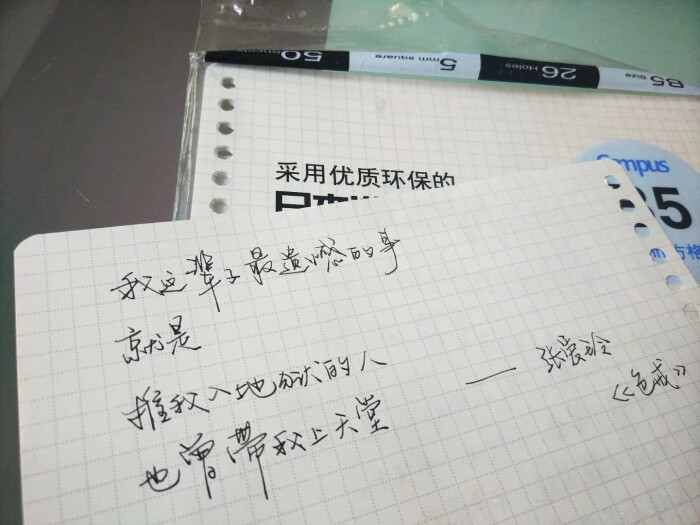 50
5 mm square
26 Holes
B5 Size
采用优质环保的
Campus
我这辈子最遗憾的事
就是
推我入地狱的人
也曾带我上天堂
—— 张爱玲
《色戒》